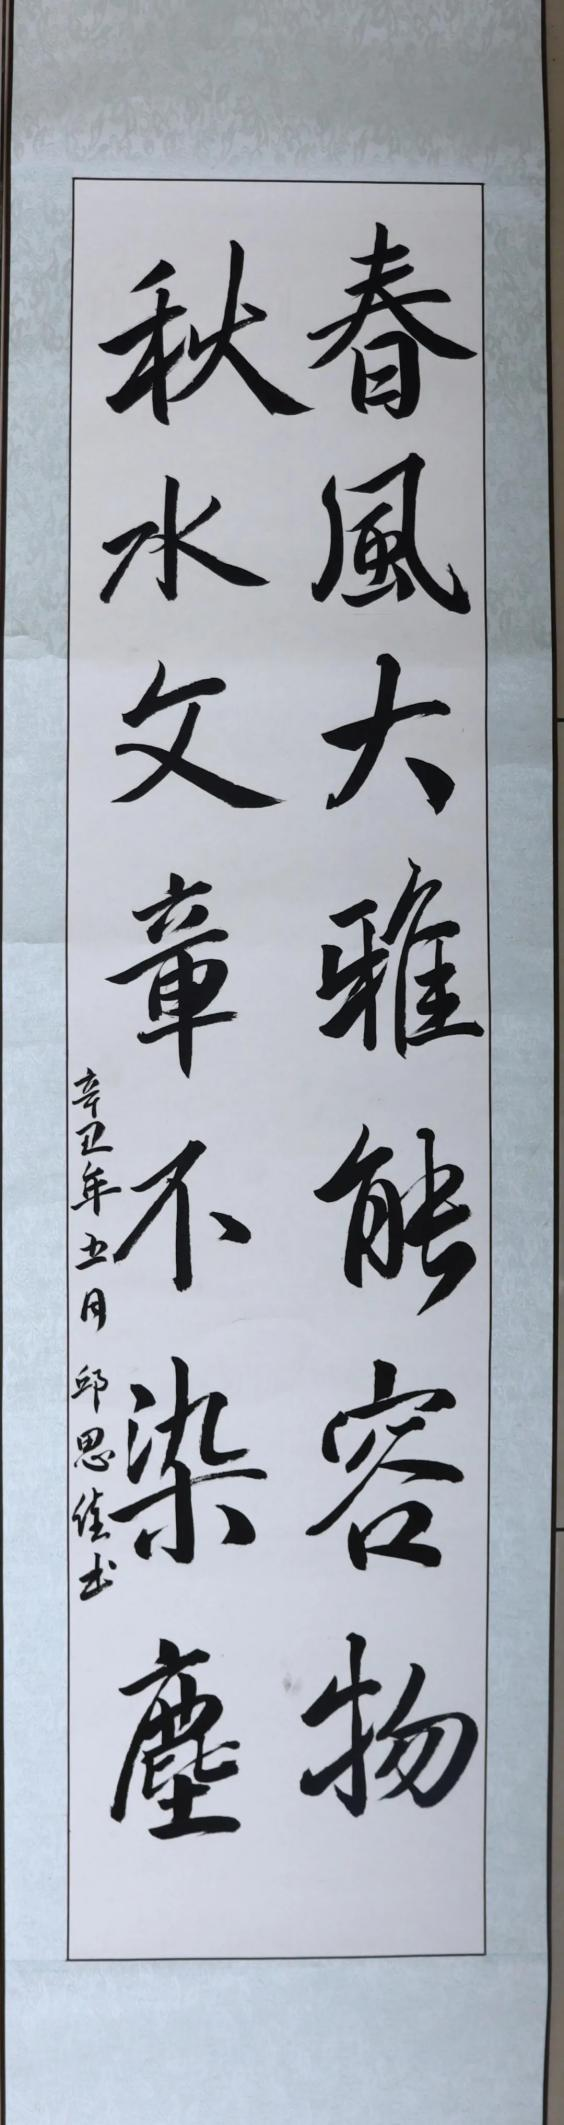 春風大雅能容物
秋水文章不染塵
辛丑年五月 邱思佳书